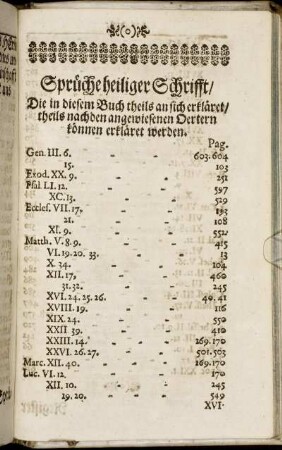 (o)
Sprüche heiliger Schrifft/
Die in diesem Buch theils an sich erkläret/
theils nach den angewiesenen Oertern
können erkläret werden.
Pag.
Gen. III. 6. - - - 603. 604
15. - - - 103
Exod. XX. 9. - - - 251
Psal. LI. 12. - - - 597
XC. 13. - - - 529
Eccles. VII. 17. - - -
21. - - - 108
XI. 9. - - -
Matth. V. 8. 9. - - - 415
VI. 19. 20. 33. - - - 13
X. 34. - - - 104
XII. 17. - - - 460
31. 32. - - - 245
XVI. 24. 25. 26. - - - 40. 41
XVIII. 19. - - - 116
XIX. 24. - - - 550
XXII 39. - - - 410
XXIII. 14. - - - 169. 170
XXVI. 26. 27. - - - 501. 503
Marc. XII. 40. - - - 169. 170
Luc. VI. 12. - - - 170
XII. 10. - - - 245
19. 20. - - - 549
XVI.